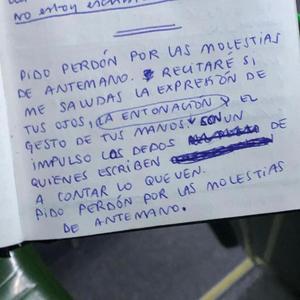 no estoy
PIDO PERDÓN POR LAS MOLESTIAS
DE ANTEMANO. RECITARÉ SI
ME SALUDAS LA EXPRESIÓN DE
TUS OJOS, LA ENTONACIÓN Y EL
GESTO DE TUS MANOS SON UN
IMPULSO LOS DEDOS DE
QUIENES ESCRIBEN
A CONTAR LO QUE VEN.
PIDO PERDÓN POR LAS MOLESTIAS
DE ANTEMANO.